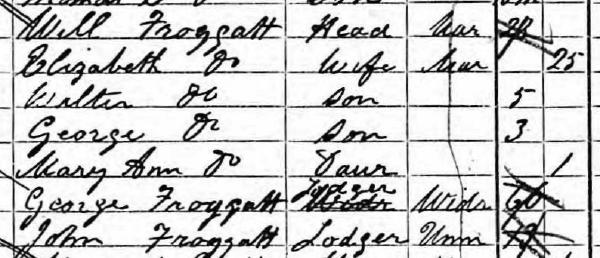 Will Froggatt Head Mar 28
Elizabeth Do Wife Mar 25
Walter Do Son 5
George Do Son 3
Mary Ann Do Daur 1
George Froggatt Lodger Widr 60
John Froggatt Lodger Unm